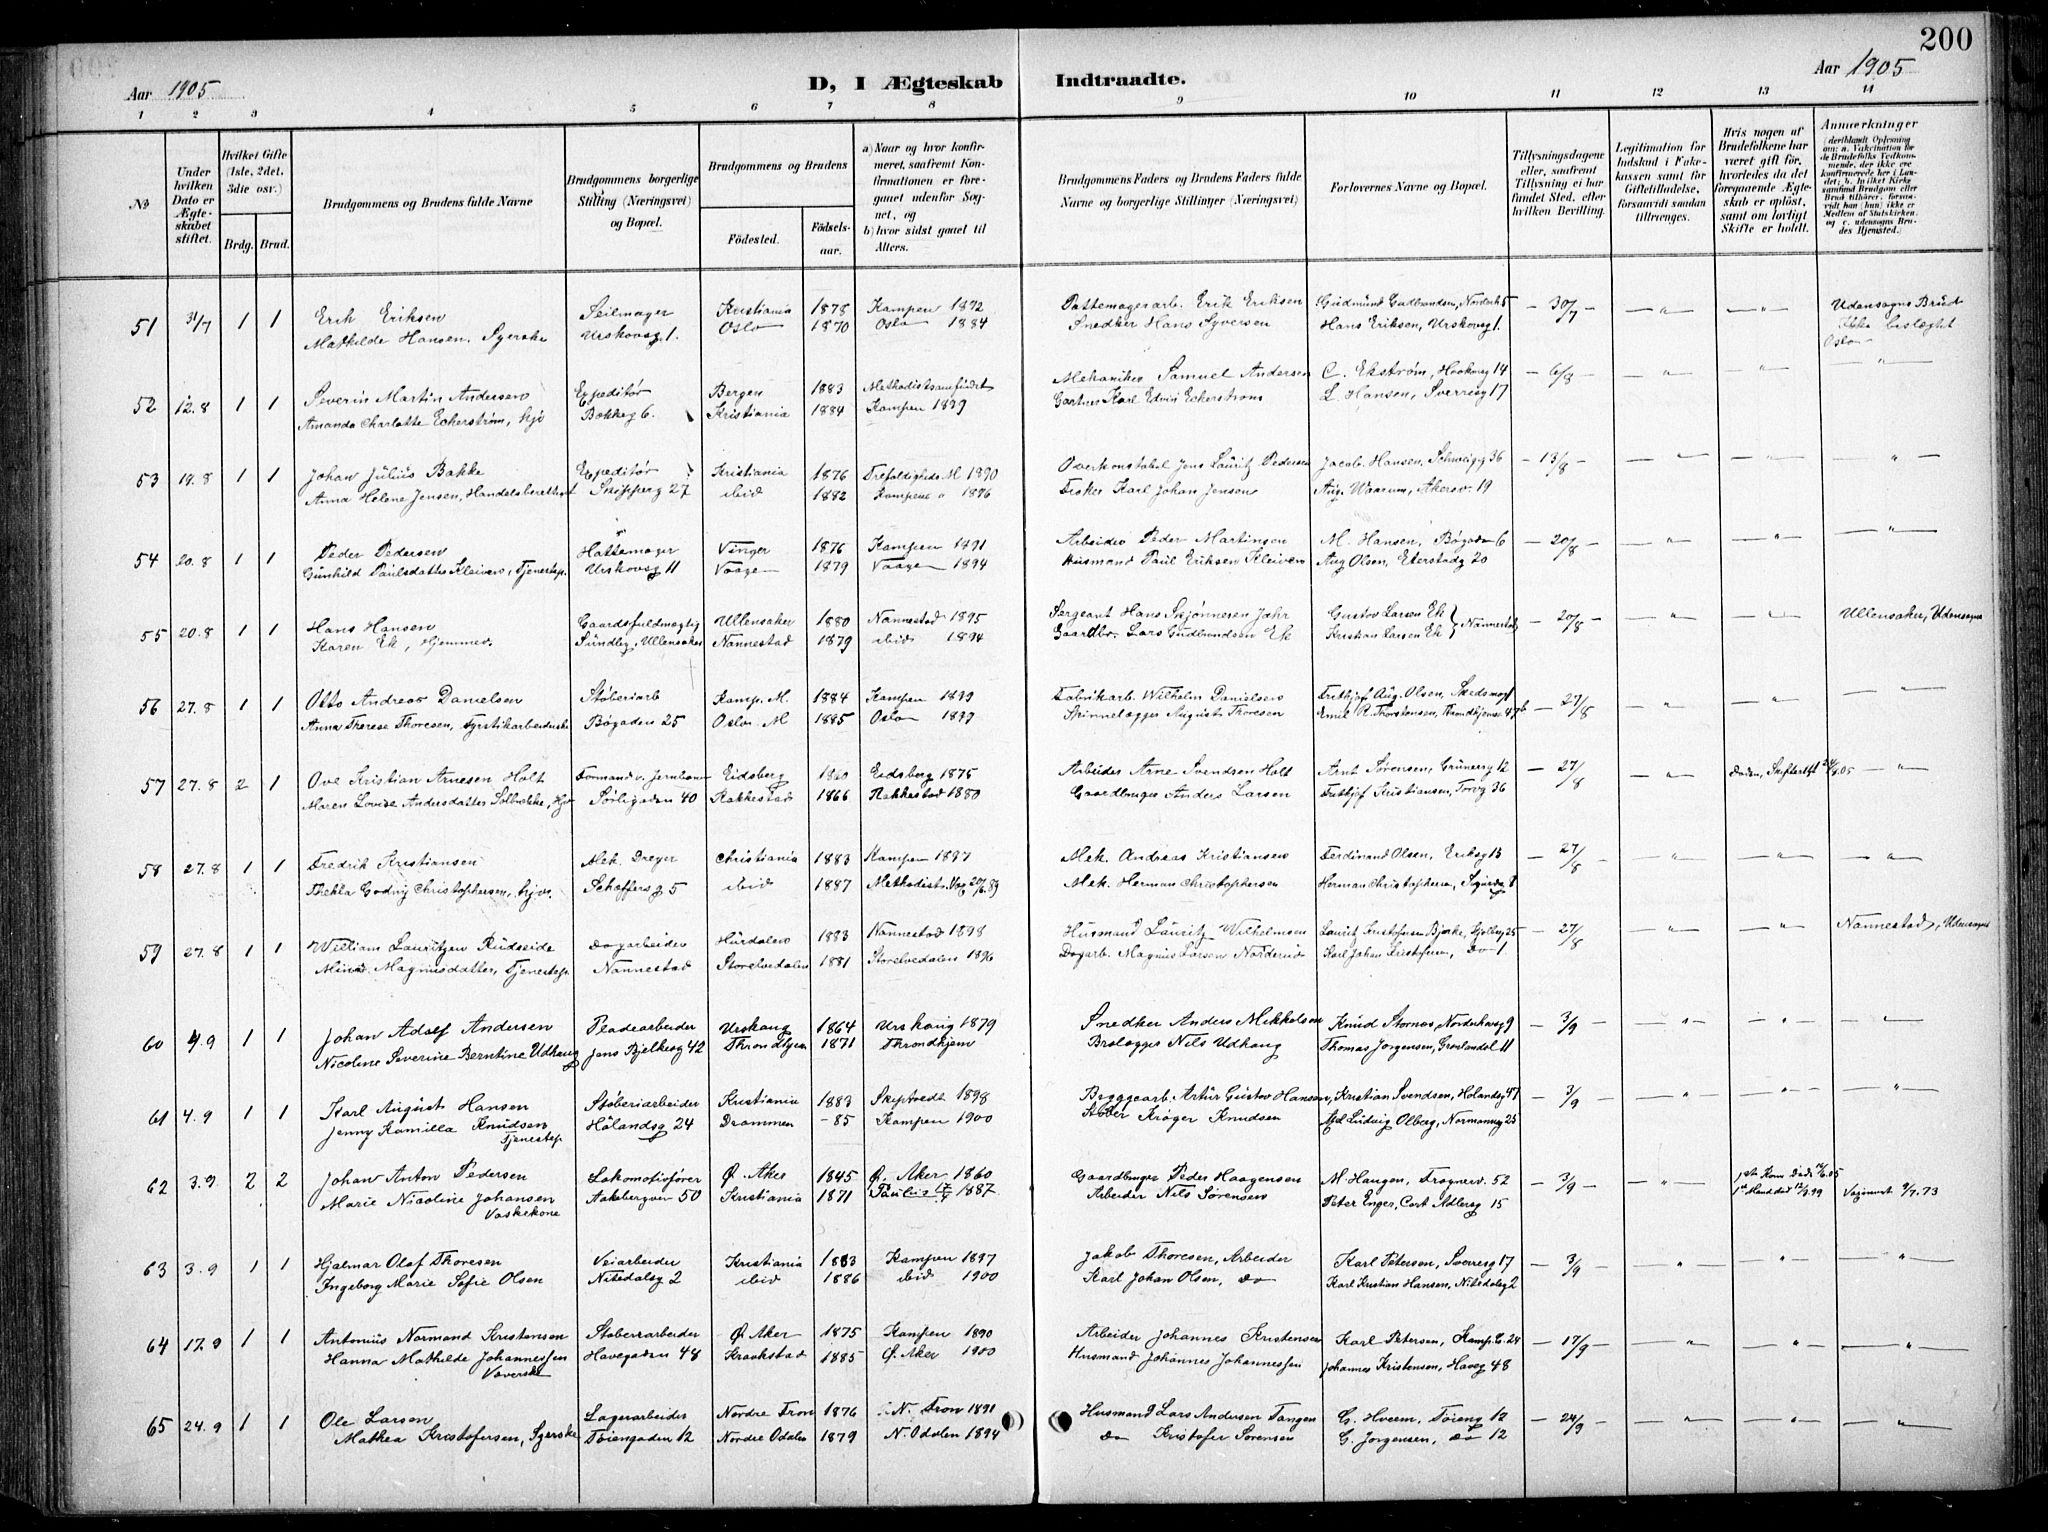 200
Aar 1905
D, I Ægteskab Indtraadte.
Aar 1905
1 2 3 4 5 6 7 8 9 10 11 12 13 14
No
Under hvilken Dato er Ægteskabet stiftet.
Hvilket Gifte (1ste, 2det, 3die osv.)
Brdg. Brud.
Brudgommens og Brudens fulde Navne
Brudgommens borgerlige Stilling (Næringsvei) og Bopæl.
Brudgommens og Brudens
Fødested.
Fødselsaar.
a) Naar og hvor konfirmeret, saafremt Konfirmationen er foregaaet udenfor Sognet, og
b) hvor sidst gaaet til Alters.
Brudgommens Faders og Brudens Faders fulde Navne og borgerlige Stillinger (Næringsvei)
Forlovernes Navne og Bopæl.
Tillysningsdagene eller, saafremt Tillysning ei har fundet Sted, efter hvilken Bevilling.
Legitimation for Indskud i Enkekassen samt for Giftetilladelse, forsaavidt saadan tiltrænges.
Hvis nogen af Brudefolkene har været gift før, hvorledes da det foregaaende Ægteskab er opløst, samt om lovligt Skifte er holdt.
Anmerkninger
51 31/7 1 1 Erik Eriksen Seilmager Kristiania 1878 Kampen 1892 Pottemagerarb. Erik Eriksen Gudmund Gudbrandsen, 30/7 Udensogns Brud
Mathilde Hansen, Syerske Urskovsg 1. Oslo 1870 Oslo 1884 Snedker Hans Syversen Hans Eriksen, Urskovsg 1. Ikke beslægtet
Oslo
52 12.8 1 1 Severin Martin Andersen Expeditør Bergen 1883 Methodistsamfundet Mekaniker Samuel Andersen C. Ekstrøm, 14 6/8
Amanda Charlotte Eckerstrøm, Bakkeg 6. Kristiania 1884 Kampen 1899 Gartner Karl Edvin Eckerstrøm L. Hansen, Sverresg 17
53 19.8 1 1 Johan Julius Bakke Expeditør Kristiania 1876 Trefoldigheds M 1890 Overkonstabel Jens Lauritz Pedersen Jacob Hansen, Schweigg 36 13/8
Anna Helene Jensen, Handelsberettiget Skipperg 27 ibid 1882 Kampen 1896 Fisker Karl Johan Jensen Aug. Waarum, Akersv. 19
54 20.8 1 1 Peder Pedersen Hattemager Vinger 1876 Kampen 1891 Arbeider Peder Martinsen M. Hansen, Bøgaden 6 20/8
Gunhild Paulsdatter Kleiven, Tjenestep. Urskovsg 11 Vaage 1879 Vaage 1894 Husmand Paul Eriksen Kleiven Aug Olsen, Eterstadg 20
55 20.8 1 1 Hans Hansen Gaardsfuldmægtig Ullensaker 1880 Nannestad 1895 Sergeant Hans Skjønnesen Jahr Gustav Larsen Ek Nannestad 20/8 Ullensaker, Udensogns
Karen Ek, Hjemmev. Sundby, Ullensaker Nannestad 1879 ibid 1894 Gaardbr. Lars Gudbrandsen Ek Kristian Larsen Ek
56 27.8 1 1 Otto Andreas Danielsen Støberiarb Kamp. M. 1884 Kampen 1899 Fabrikarb. Wilhelm Danielsen Frithjof Aug. Olsen, 27/8
Anna Therese Thoresen, Fyrstikarbeiderske Bøgaden 25 Oslo M 1885 Oslo 1899 Skinnelægger August Thoresen Emil R. Thorstensen, Trondhjemsv 47b
57 27.8 2 1 Ove Kristian Arnesen Holt Formand v. Jernbanen Eidsberg 1860 Eidsberg 1875 Arbeider Arne Svendsen Holt Arnt Sørensen, Grünersg 12 27/8 Døden, Skifteattest
Maren Lovise Andersdatter Solbrække, Sørligaden 40 Rakkestad 1866 Rakkestad 1880 Gaardbruger Anders Larsen Frithjof Kristiansen, Torvg 36
58 27.8 1 1 Fredrik Kristiansen Mek. Dreyer Christiania 1883 Kampen 1897 Mek. Andreas Kristiansen Ferdinand Olsen, Eriksg 13 27/8
Thekla Godvig Christophersen, Hjv. Schæffersg 5 ibid 1887 Methodist. Mek. Herman Christophersen Herman Christophersen, 8
59 27.8 1 1 William Lauritzen Rudseide Dagarbeider Hurdalen 1883 Nannestad 1898 Husmand Lauritz Wilhelmsen Lauritz Kristofersen Bjerke, 25 27/8 Nannestad, Udensogns
Mina Magnusdatter, Tjenestep. Nannestad Storelvedalen 1881 Storelvedalen 1896 Dagarb. Magnus Larsen Norderud Karl Johan Kristofersen, Do 1
60 4.9 1 1 Johan Adolf Andersen Pladearbeider Urskaug 1864 Urskaug 1879 Snedker Anders Mikkelsen Knud Stornes, Norderhovsg 9 3/9
Nicoline Severine Berntine Udhaug Jens Bjelkesg 42 Throndhjem 1871 Throndhjem Brolægger Nils Udhaug Thomas Jorgensen, Grønlandsl 11
61 4.9 1 1 Karl August Hansen Støberiarbeider Kristiania 1883 Skiptvedt 1898 Bryggearb. Artur Gustav Hansen, Kristian Svendsen, Hølandsg 47 3/9
Jenny Kamilla Knudsen Hølandsg 24 Drammen -85 Kampen 1900 Støber Krøger Knudsen Ludvig Olberg, Normannsg 25
Tjenestep
62 3.9 2 2 Johan Anton Pedersen Lokomotivfører Ø. Aker 1845 Ø. Aker 1860 Gaardbruger Peder Haagensen M. Haugen, Frognerv. 52 3/9 1ste Kone død
Marie Nicoline Johansen Aakebergven 50 Kristiania 1871 Paulus 1887 Arbeider Nils Sørensen Peter Enger, Cort Adlersg 15 1ste Mand død Vaccineret 9/7.73
Vaskekone
63 3.9 1 1 Hjalmar Olaf Thoresen Veiarbeider Kristiania 1883 Kampen 1897 Jakob Thoresen, Arbeider Karl Petersen, Sverresg 17 3/9
Ingeborg Marie Sofie Olsen Nitedalsg 2 ibid 1886 ibid 1900 Karl Johan Olsen, Do Karl Kristian Hansen, Nitedalsg 2
64 17.9 1 1 Antonius Normand Kristensen Støberiarbeider Ø. Aker 1875 Kampen 1890 Arbeider Johannes Kristensen Karl Petersen, Kamp. G. 24 17/9
Hanna Mathilde Johannessen Havegaden 48 Kraakstad 1885 Ø. Aker 1900 Husmand Johannes Johannessen Johannes Kristensen, Haveg 48
Væverske
65 24.9 1 1 Ole Larsen Lagerarbeider Nordre Fron 1876 N. Fron 1891 Husmand Lars Andersen Tangen G. Hveem, Tøieng 12 24/9
Mathea Kristofersen, Syerske Tøiengaden 12 Nordre Odalen 1879 N. Odalen 1894 Do Kristofer Sørensen G. Jorgensen, Do 12